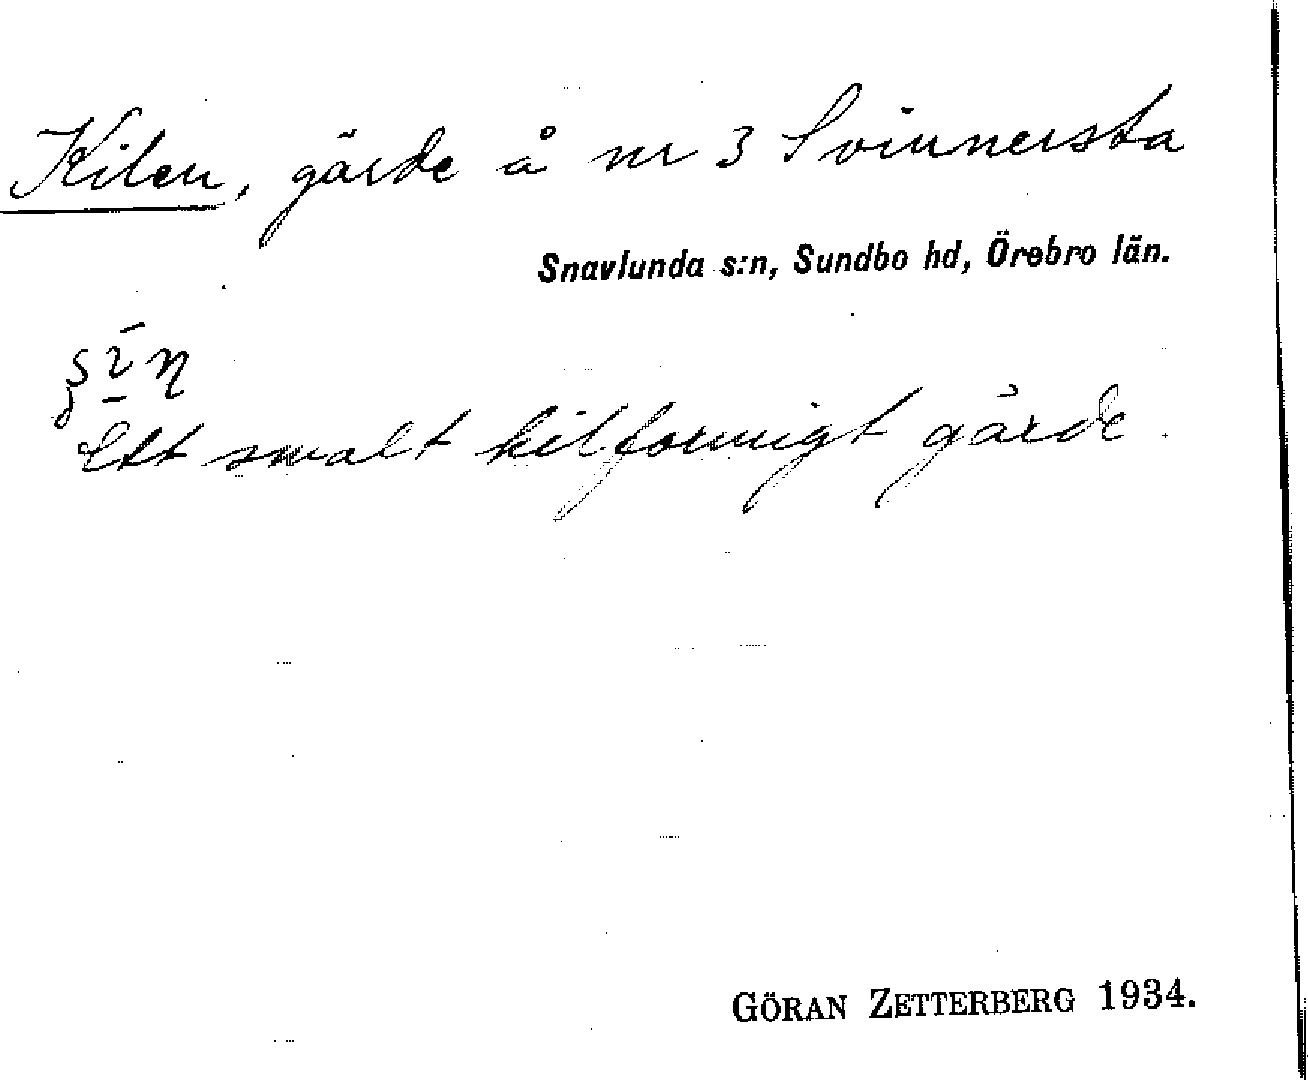 Kilen, gärde å nr 3 Svinnersta
Snavlunda s:n, Sundbo hd, Örebro län.
Ett smalt kilformigt gärde.
GÖRAN ZETTERBERG 1934.